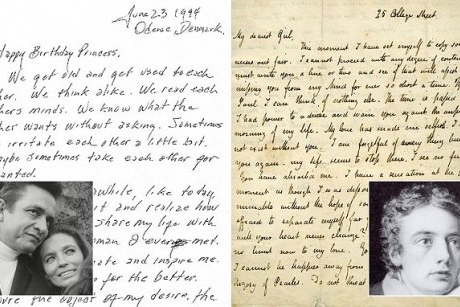 June 23 1994
Odense Denmark.
Happy Birthday Princess,
We get old and get used to each
her. We think alike. We read each
hers minds. We know what the
her wants without asking. Sometimes
irritate each other a little bit.
aybe sometimes take each other for
anted.
awhile, like today,
it and realize how
share my life with
oman I ever met.
ate and inspire me
for the better.
u're the object of my desire, the
25 College Street.
My dearest Girl,
This moment I have set myself to copy some
verses out fair. I cannot proceed with any degree of content.
must write you a line or two and see if that will assist
missing you from my Mind for ever so short a time.
Soul I can think of nothing else. The time is passed
I had power to advise and warn you against the
morning of my Life. My love has made me selfish. I
not exist without you. I am forgetful of every thing but
you again - my Life seems to stop there. I see no
You have absorb'd me. I have a sensation at the
moment as though I was
miserable without the hope of
afraid to separate myself far
will your heart never change?
no limit now to my love.
I cannot be happier away from
of Pearles. Do not threat